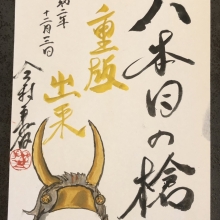 八本目の槍
重版
出来
令和二年
十二月三日
今村翔吾